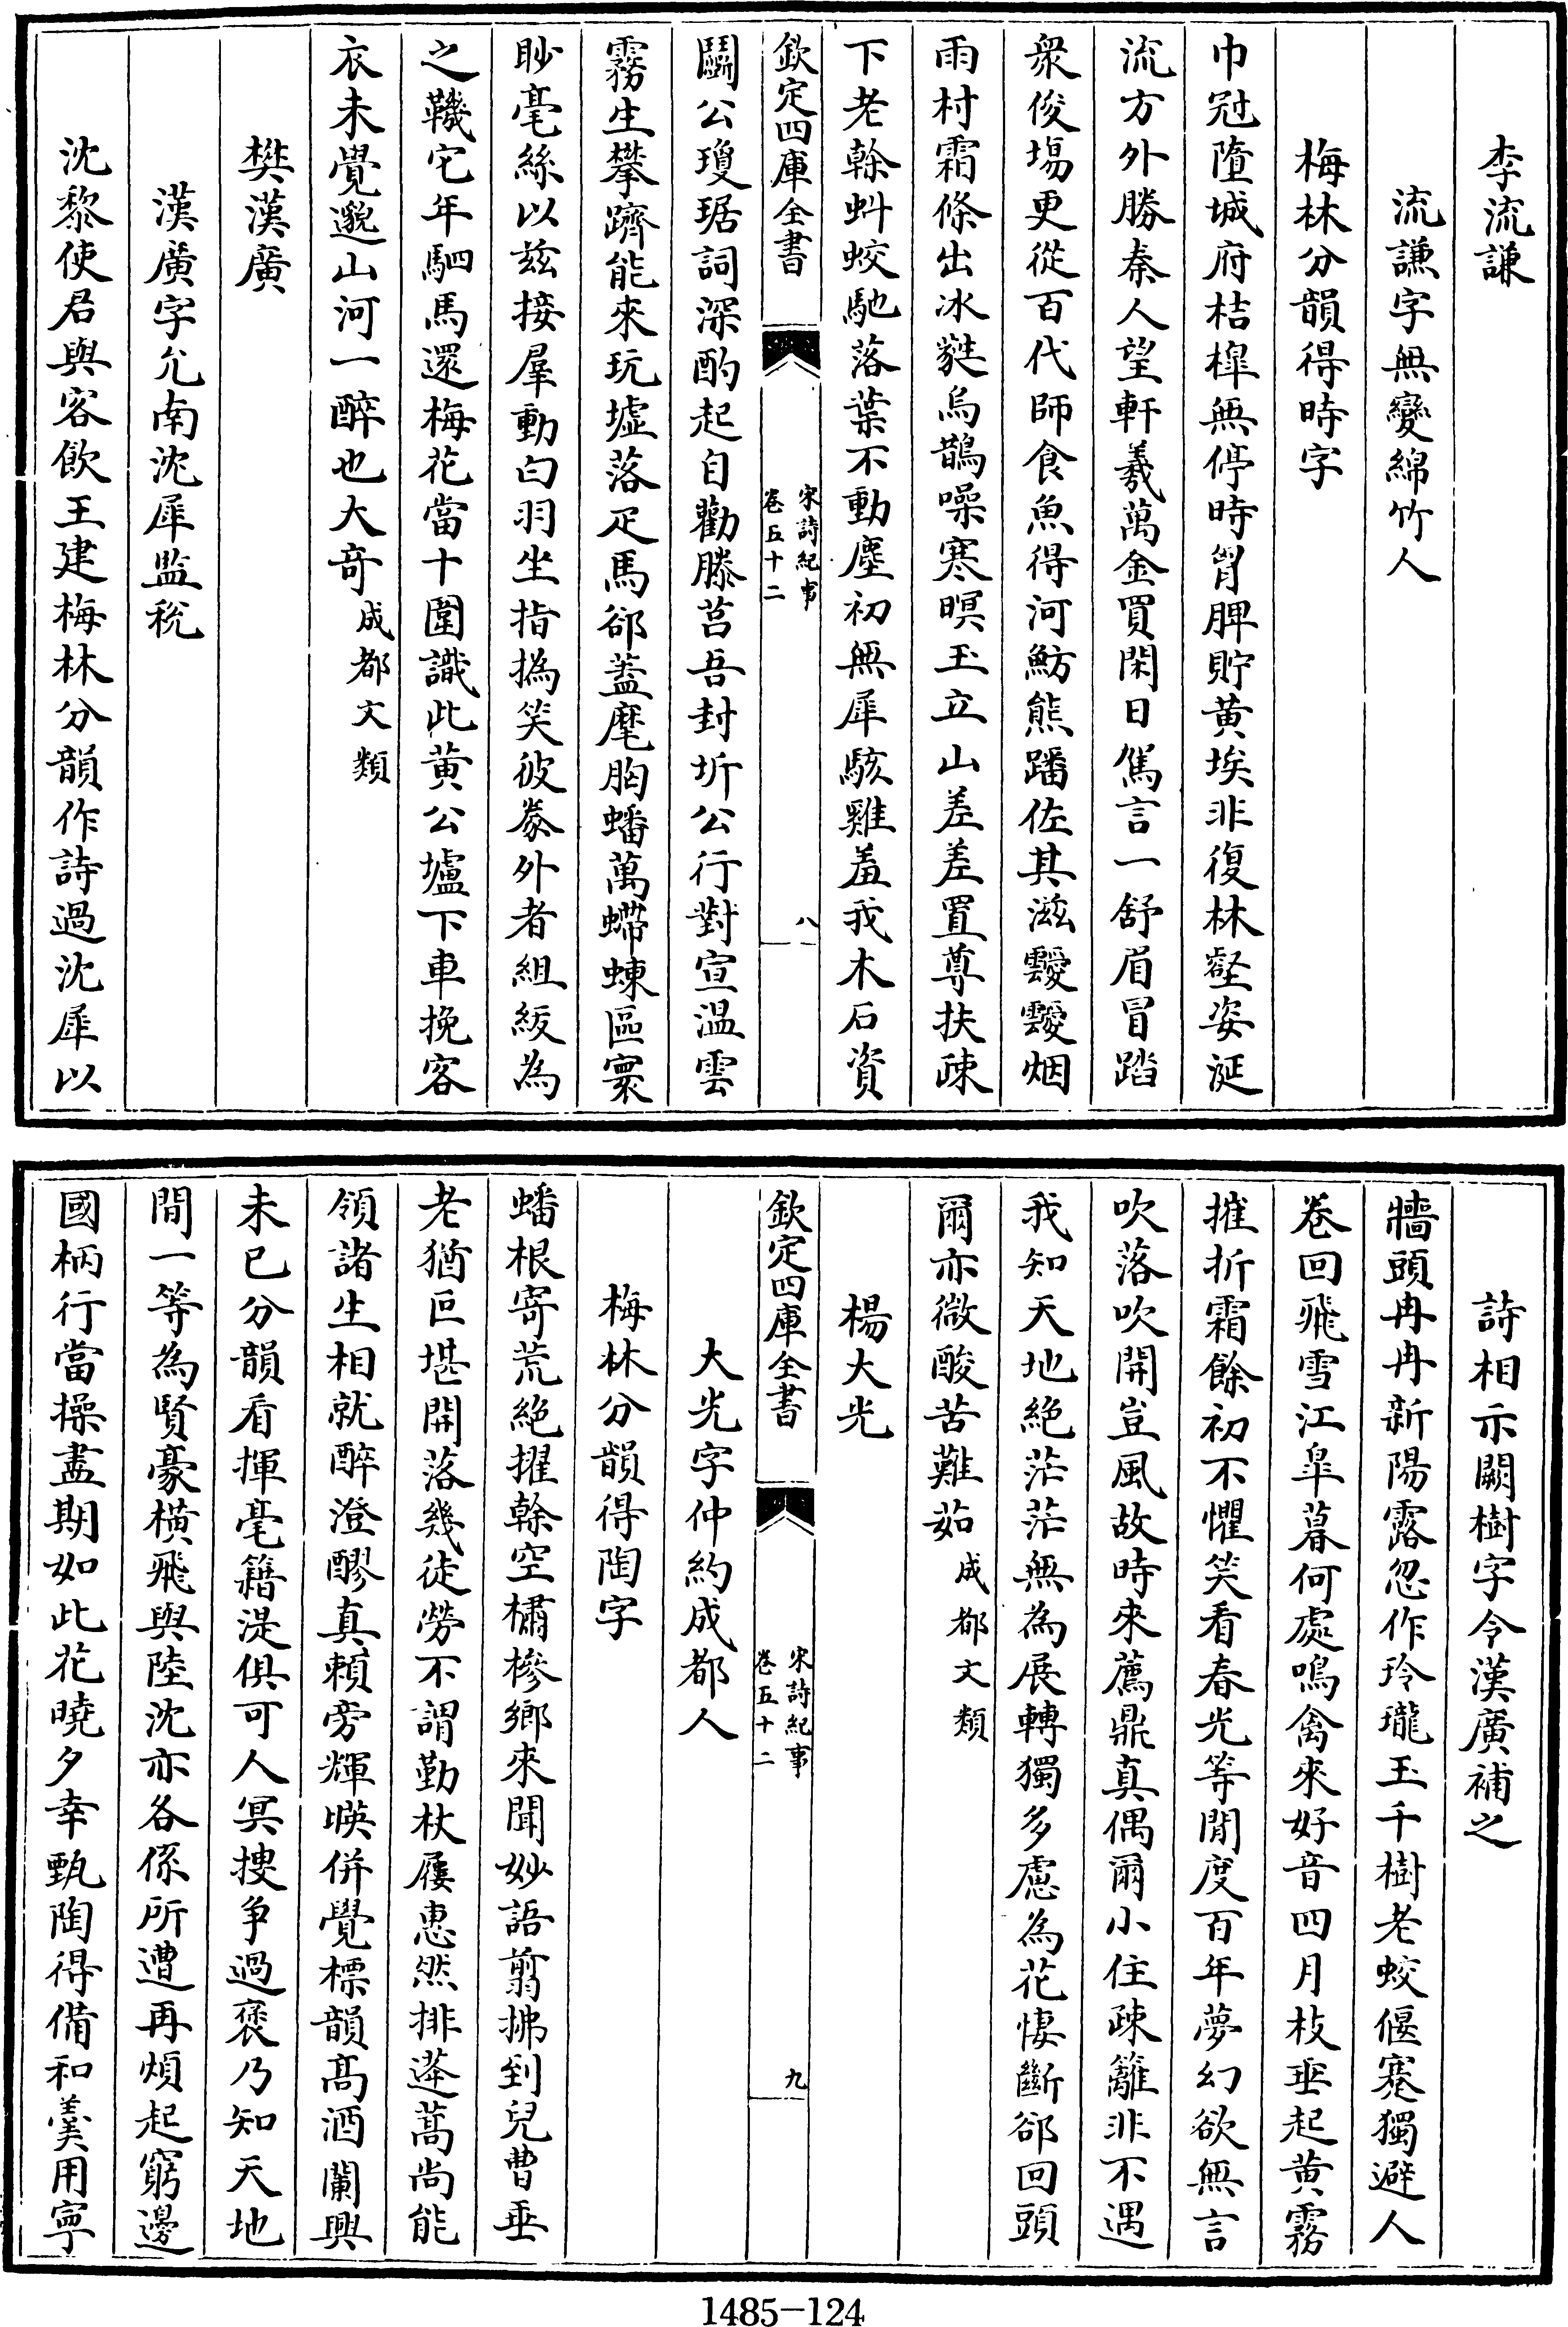 李流謙
流謙字無變綿竹人
梅林分韻得時字
巾冠墮城府桔槹無停時胷脾貯黄埃非復林壑姿涎
流方外勝秦人望軒羲萬金買閑日儁言一舒眉冒踏
衆俊場更從百代師食魚得河魴熊蹯佐其滋靉靉烟
雨村霜條出冰蕤烏鵲噪寒暝玉立山差差置尊扶疎
下老榦虯蛟馳落葉不動塵初無犀駭雞羞我木石資
欽定四庫全書
宋詩紀事
卷五十二
八
鬬公瓊琚詞深酌起自勸滕莒吾封圻公行對宣温雲
霧生攀躋能來玩墟落疋馬郤蓋麾胸蟠萬螮蝀區寰
眇毫絲以兹接羣動白羽坐指撝笑彼豢外者組紱為
之鞿它年駟馬還梅花當十圍識此黄公壚下車挽客
衣未覺邈山河一醉也大奇成都文類
樊漢廣
漢廣字允南沈犀監税
沈黎使君與客飲王建梅林分韻作詩過沈犀以
詩相示闕樹字令漢廣補之
牆頭冉冉新陽露忽作玲瓏玉千樹老蛟偃蹇獨避人
卷回飛雪江臯暮何處鳴禽來好音四月枝垂起黄霧
摧折霜餘初不懼笑看春光等閒度百年夢幻欲無言
吹落吹開豈風故時來薦鼎真偶爾小住疎籬非不遇
我知天地絶茫茫無為展轉獨多慮為花悽斷郤回頭
爾亦微酸苦難茹成都文類
楊大光
欽定四庫全書
宋詩紀事
卷五十二
九
大光字仲約成都人
梅林分韻得陶字
蟠根寄荒絶擢榦空橚槮鄉來聞妙語翦拂到兒曹垂
老猶叵堪開落幾徒勞不謂勤杖屨惠然排蓬蒿尚能
領諸生相就醉澄醪真賴旁輝暎併覺標韻高酒闌興
未已分韻看揮毫籍湜俱可人冥搜争過褒乃知天地
間一等為賢豪横飛與陸沈亦各係所遭再煩起窮邊
國柄行當操盡期如此花曉夕幸甄陶得備和羹用寧
1485-124